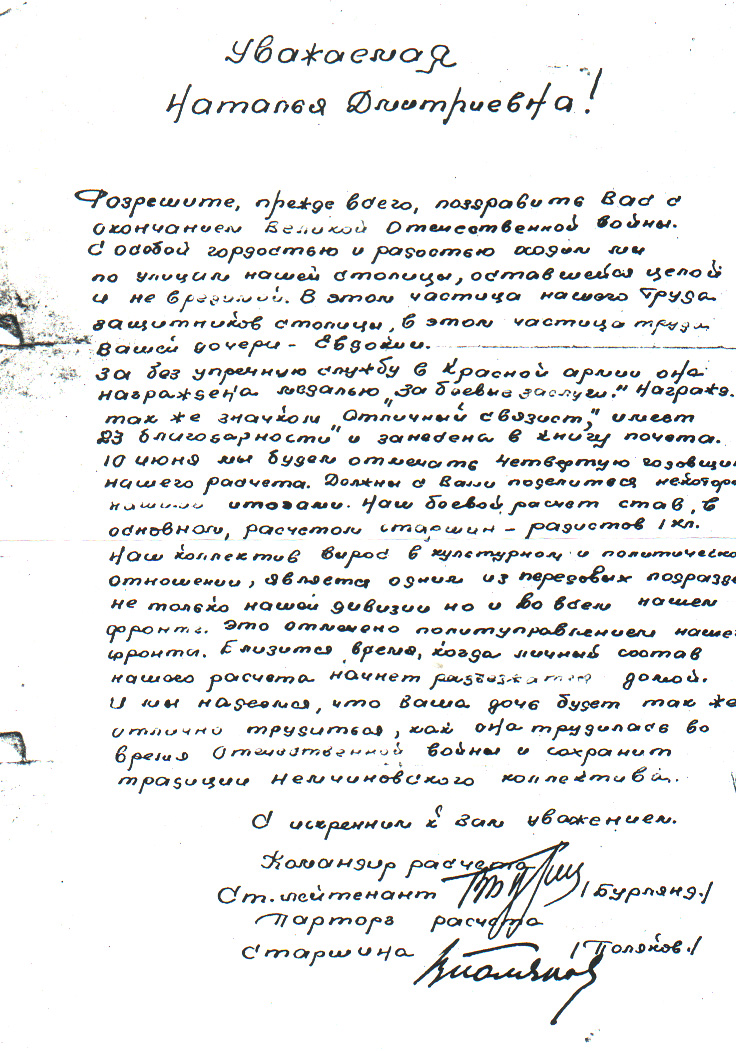 Уважаемая
Наталья Дмитриевна!
Розрешите, прежде всего, поздравить Вас с
окончанием Великой Отечественной войны.
С особой гордостью и радостью ходим мы
по улицам нашей столицы, оставшейся целой
и не вредимий. В этом частица нашего труда
защитников столицы, в этом частица труда
Вашей дочери - Евдокии.
За без упречную службу в Красной армии она
награждена медалью „За боевые заслуги." Награжд.
так же значком „Отличный связист," имеет
23 благодарности" и занесена в книгу почета.
10 июня мы будем отмечать четвертую годовщин
нашего расчета. Должны с Вами поделиться некотор
нашими итогами. Наш боевой расчет стал, в
основном, расчетом старшин - радистов 1 кл.
Наш коллектив вырос в культурном и политическо
отношении, является одним из передовых подразд
не только нашей дивизии но и во всем нашем
фронте. Это отмечено политуправлением наше
фронта. Близится время, когда личный состав
нашего расчета начнет разъезжаться домой.
И мы надеемся, что Ваша дочь будет так же
отлично трудиться, как она трудилась во
время Отечественной войны и сохранит
традиции Немчиновского коллектива.
С искренним к Вам уважением.
Командир расчета
Ст. лейтенант /Бурлянд./
Парторг расчета
Старшина /Поляков./
ВПоляков